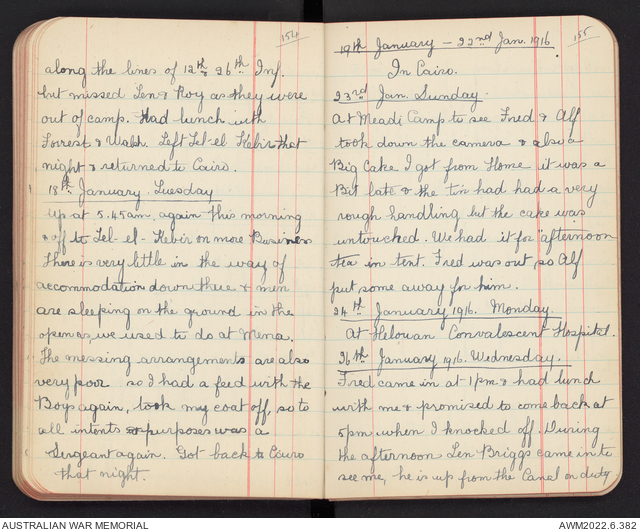 154
along the lines of 12th & 26th Inf.
but missed Len & Roy as they were
out of camp. Had lunch with
Forrest & Walsh. Left Tel-el Kebir that
night & returned to Cairo.
18th January. Tuesday
Up at 5.45am, again this morning
& off to Tel-el-Kebir on more Business
There is very little in the way of
accommodation down there & men
are sleeping on the ground in the
open as, we used to do at Mena.
The messing arrangements are also
very poor so I had a feed with the
Boys again, took my coat off, so to
all intents & purposes was a
Sergeant again. Got back to Cairo
that night.
155
19th January – 22nd Jan. 1916.
In Cairo.
23rd Jan. Sunday.
At Meadi Camp to see Fred & Alf
took down the camera & also a
Big Cake. I got from Home it was a
Bit late & the tin had had a very
rough handling but the cake was
untouched. We had it for "afternoon
tea in tent. Fred was out, so Alf
put some away for him.
24th January 1916. Monday.
At Helouan Convalescent Hospital.
26th January 1916. Wednesday.
Fred came in at 1pm & had lunch
with me & promised to come back at
5pm when I knocked off. During
the afternoon Len Briggs came in to
see me, he is up from the Canal on duty
AUSTRALIAN WAR MEMORIAL
AWM2022.6.382